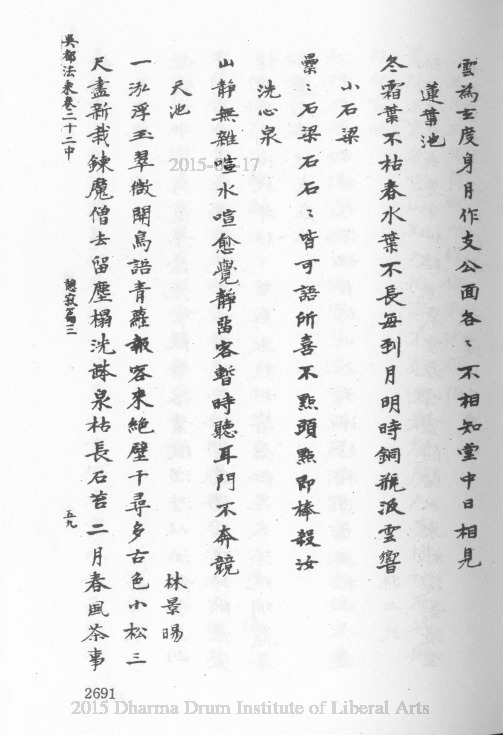 雲為玄度身月作支公面各〻不相知堂中日相見
蓮葉池
冬霜葉不枯春水葉不長每到月明時銅瓶汲雲響
小石梁
纍〻石梁石石〻皆可語所喜不點頭點即棒殺汝
洗心泉
山靜無雜喧水喧愈覺靜留客暫時聽耳門不奔競
天池
林景暘
一泓浮玉翠微開鳥語青蘿報客來絕壁千尋多古色小松三
尺盡新栽鍊魔僧去留塵榻洗鉢泉枯長石苔二月春風茶事
吳都法乘卷二十二中
憩寂篇三
五九
2691
2015-03-17
2015 Dharma Drum Institute of Liberal Arts